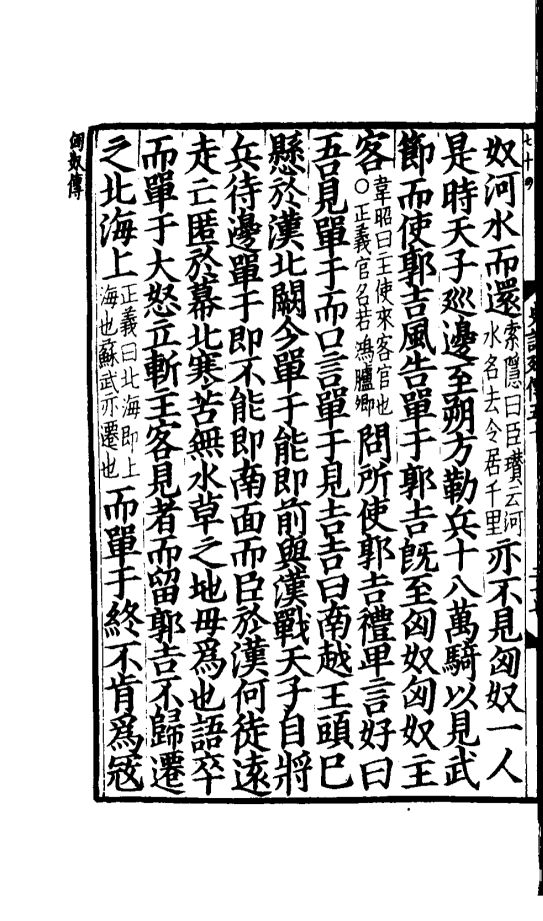 奴河水而還索隱曰臣瓚云河水名去令居千里亦不見匈奴一人
是時天子廵邊至朔方勒兵十八萬騎以見武
節而使郭吉風告單于郭吉旣至匈奴匈奴主
客韋昭曰主使來客官也○正義官名若鴻臚卿問所使郭吉禮卑言好曰
吾見單于而口言單于見吉吉曰南越王頭已
懸於漢北闕今單于能即前與漢戰天子自將
兵待邊單于即不能即南面而臣於漢何徒遠
走亡匿於幕北寒苦無水草之地毋爲也語卒
而單于大怒立斬主客見者而留郭吉不歸遷
之北海上正義曰北海即上海也蘇武亦遷也而單于終不肯爲寇
匈奴傳